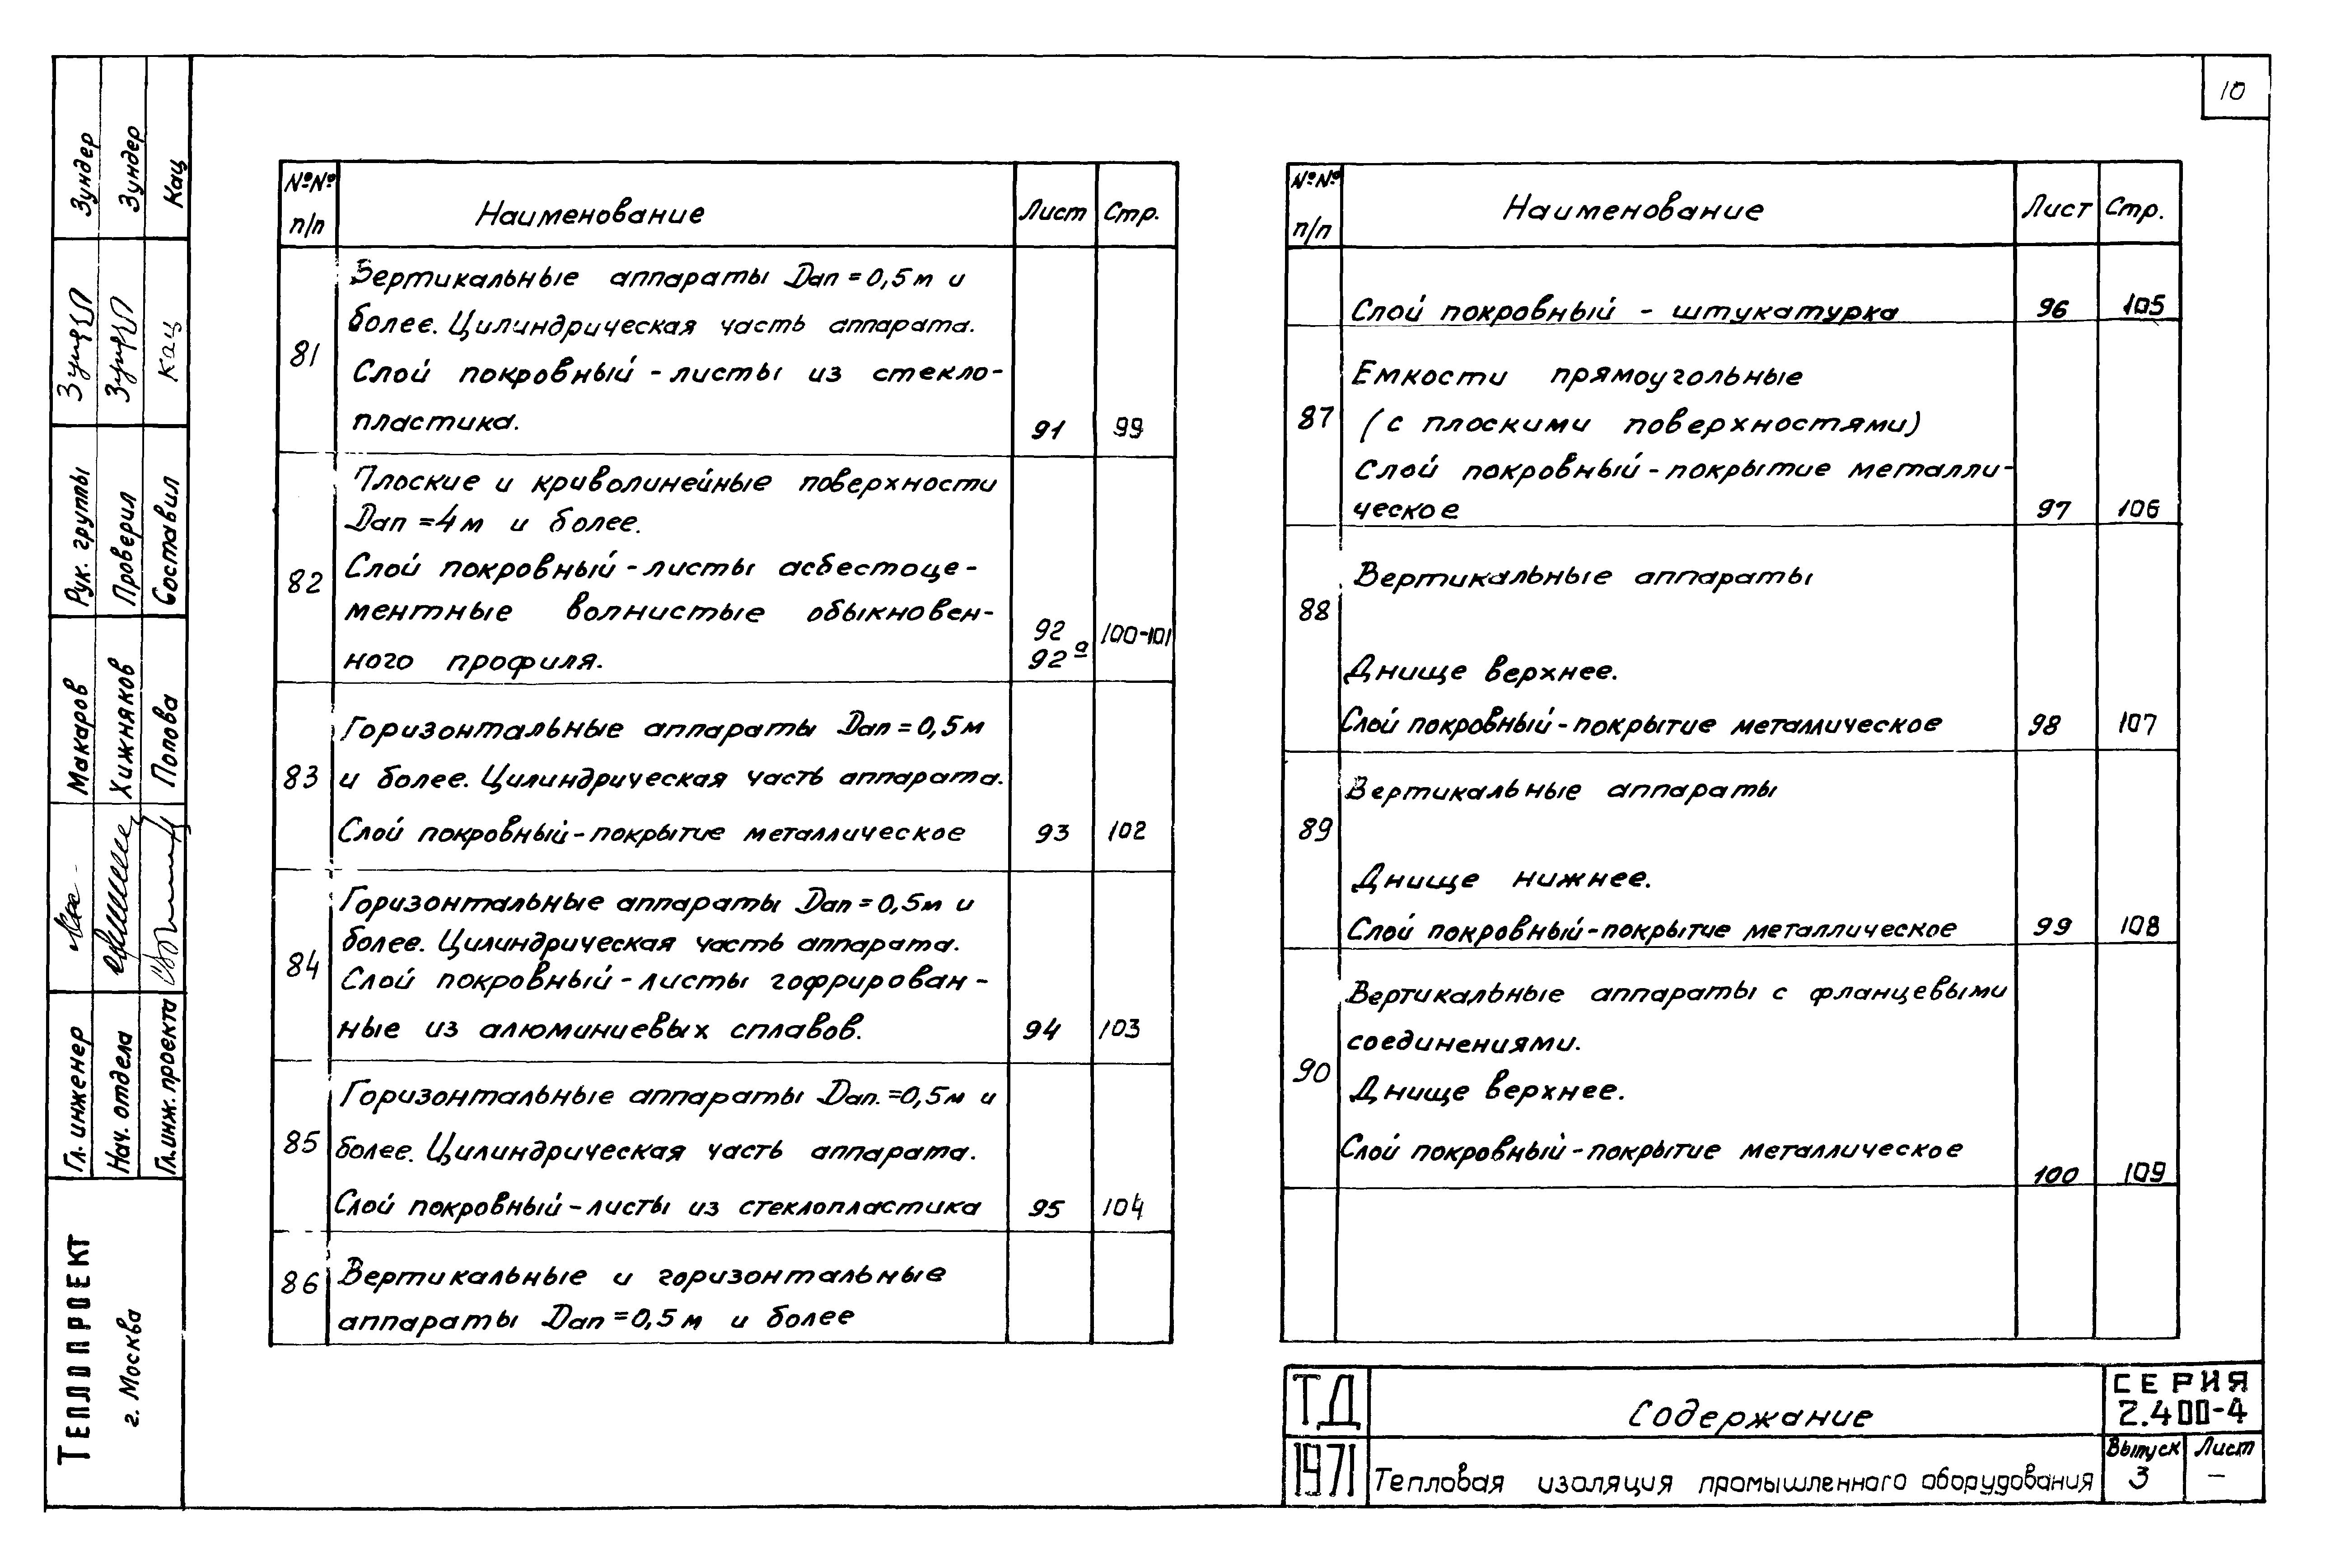 10
№№ п/п Наименование Лист Стр.
81
Вертикальные аппараты Dап = 0,5м и
более. Цилиндрическая часть аппарата.
Слой покровный - листы из стекло-
пластика. 91 99
82
Плоские и криволинейные поверхности
Dап = 4м и более.
Слой покровный - листы асбестоце-
ментные волнистые обыкновен-
ного профиля. 92 92а 100-101
83
Горизонтальные аппараты Dап = 0,5м
и более. Цилиндрическая часть аппарата.
Слой покровный - покрытие металлическое 93 102
84
Горизонтальные аппараты Dап = 0,5м и
более. Цилиндрическая часть аппарата.
Слой покровный - листы гофрирован-
ные из алюминиевых сплавов. 94 103
85
Горизонтальные аппараты Dап. = 0,5м и
более. Цилиндрическая часть аппарата.
Слой покровный - листы из стеклопластика 95 104
86
Вертикальные и горизонтальные
аппараты Dап = 0,5м и более
№№ п/п Наименование Лист Стр.
Слой покровный - штукатурка 96 105
87
Емкости прямоугольные
(с плоскими поверхностями)
Слой покровный - покрытие металли-
ческое 97 106
88
Вертикальные аппараты
Днище верхнее.
Слой покровный - покрытие металлическое 98 107
89
Вертикальные аппараты
Днище нижнее.
Слой покровный - покрытие металлическое 99 108
90
Вертикальные аппараты с фланцевыми
соединениями.
Днище верхнее.
Слой покровный - покрытие металлическое
100 109
ТД
1971
Содержание
Тепловая изоляция промышленного оборудования
СЕРИЯ
2.400-4
Выпуск Лист
3 —
Теплопроект
г. Москва
Гл. инженер Макаров Рук. группы Зундер
Нач. отдела Хижняков Проверил Зундер
Гл. инж. проекта Попова Составил Кац Кац